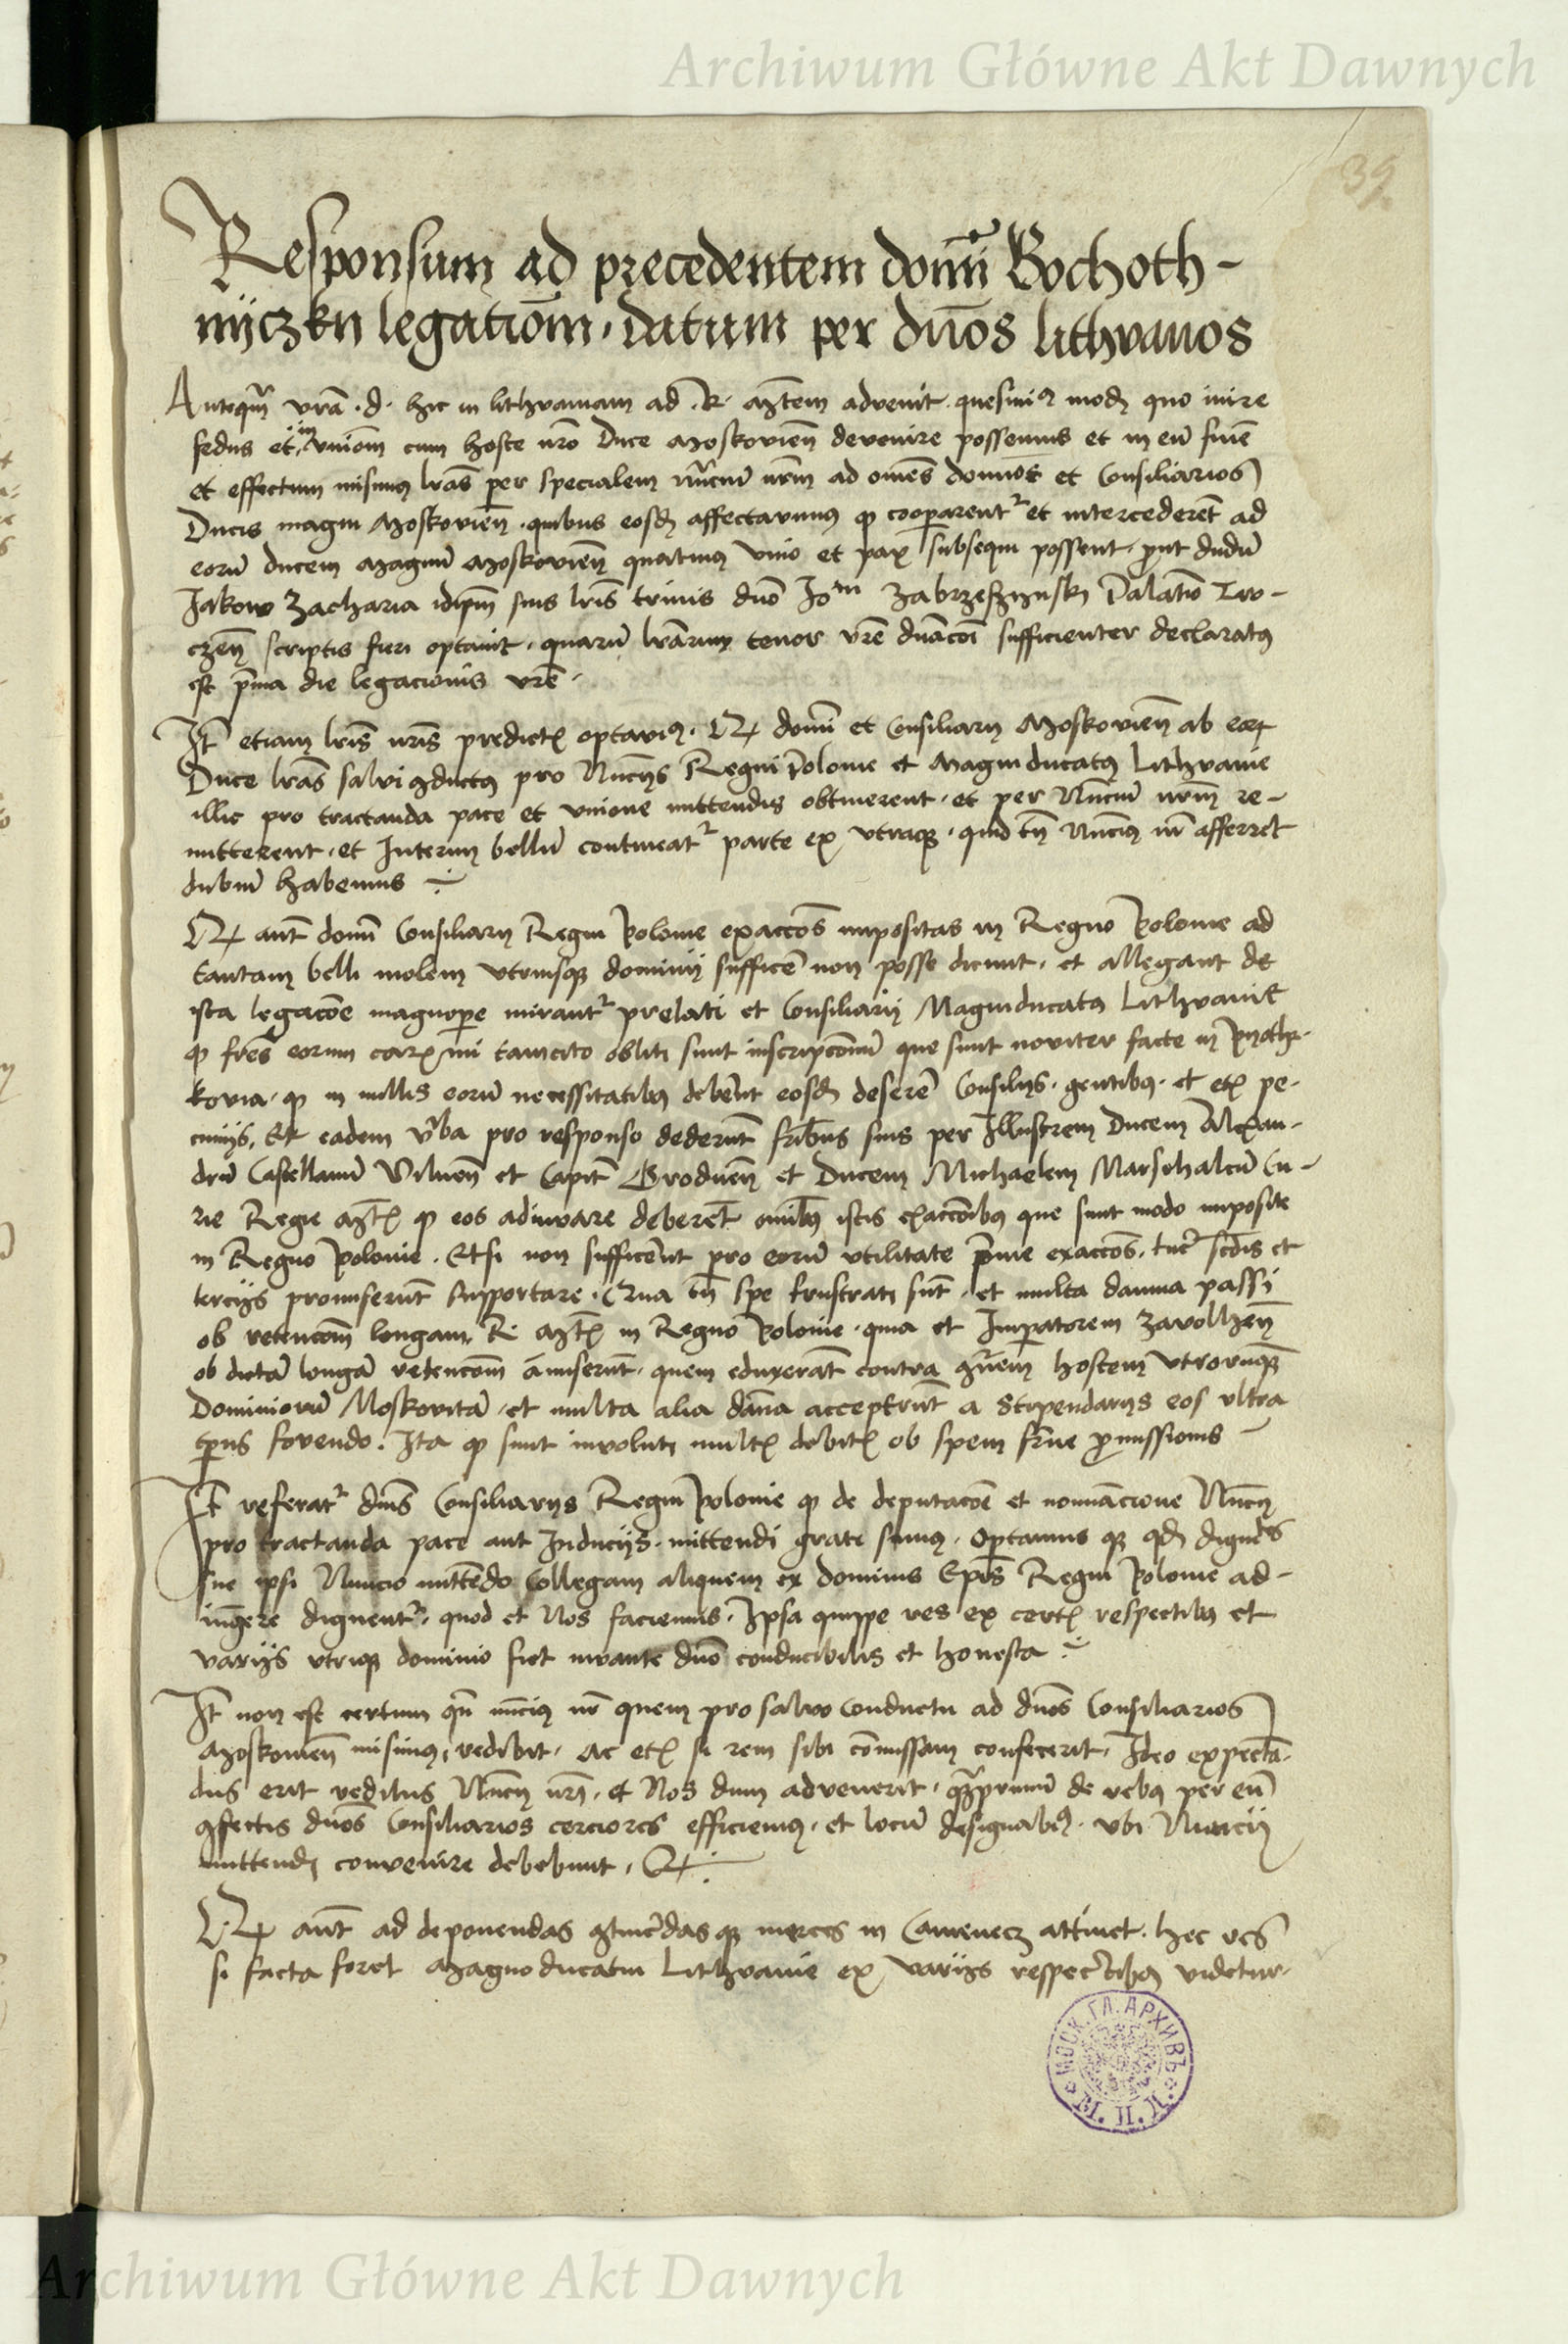 Archiwum Główne Akt Dawnych
39
Responsum ad precedentem domī Bochoth-
nyczkn legatiom̄ . datum per dn̄os lithvanos
Anteqm̄ vrā . d . hic in lithvaniam ad . R . Mt̄em advenit . quesimus modū quo inire
fedus et in vniom̄ cum hoste nr̄o Duce Moskovien̄ devenire possemus et in eū finē
et effectum misimus lrās per specialem nūnciū nrm̄ ad omēs dominos et Consiliarios
Ducis magni Moskovien̄ . quibus eosd affectavimus qp cooparentr et intercederēt ad
eorū ducem Magnū Moskovien̄ quatinus vnio et pax subsequi possent . prout dudū
Jakow Zacharia idipm̄ suis lrīs trinis dn̄o Jom Zabrzeszynsky Palatīo Tro-
czen̄ scriptis fieri optavit . quarū lrārum tenor vrē dn̄acōi sufficienter declaratus
est prīma die legacionis vrē .
It̄ etiam lrīs nr̄is predictis optavimus . Vt domī et Consiliarij Moskovien̄ ab eorum
Duce lrās salvi conductus pro Nuncys Regni Polonie et Magniducatus Lithvanie
illic pro tractanda pace et vnione mittendis obtinerent . et per Nunciū nrm̄ re-
mitterent . et Interim bellū contineatr parte ex vtraque . quid tn̄ Nuncius nr̄ afferret
dubiū habemus ÷
Vt aut̄ domī Consiliarij Regni Polonie exaccōs impositas in Regno Polonie ad
tantam belli molem vtriusque dominij sufficē non posse dicunt . et allegant de
ista legacōe magnope mirantr prelati et Consiliarij Magniducatus Lithvanie
qp frēs eorum carissimi tamcito obliti sunt inscripcōnū que sunt noviter facte in Pyothr-
kovia . qp in nullis eorū necessitatibus debent eosd deserē Consilijs . gentibus . et etiam pe-
cunijs . Et eadem vba pro responso dederūt frībus suis per Illustrem Ducem Alexan-
drū Castellanū Vilnen̄ et Capit̄ Grodnen̄ et Ducem Michaelem Marschalcū Cu-
rie Regie Mtis qp eos adiuvare deberēt omībus istis exaccōibus que sunt modo imposite
in Regno Polonie . Et si non sufficērēt pro eorū vtilitate prīme exaccōs . tunc scdīs et
tercijs promiserūt supportare . Qua tn̄ spe frustrati sūt . et multa damna passi
ob retencōm̄ longam R . Mtis in Regno Polonie . quia et Imperatorem Zavolhen̄
ob dictā longā retencōm̄ amiserūt . quem eduxerāt contra comunem hostem vtrorūque
Dominiorū Moskovitā . et multa alia dāna acceperūt a Stipendarijs eos vltra
tpus fovendo . Ita qp sunt involuti multis debitis ob spem frn̄e promissionis
It̄ referatr dnīs Consiliarijs Regni Polonie qp de deputacōe et nominācione Nuncij
pro tractanda pace aut Inducijs . mittendi grati sumus . Optamus que qd dignitates
sue ipsi Nuncio mittendo Collegam aliquem ex dominis Epīs Regni Polonie ad-
iūgere dignentr . quod et Nos faciemus . Ipsa quippe res ex certis respectibus et
varijs vtrique dominio fiet iuvante dn̄o conducibilis et honesta ÷
It̄ non est certum qn̄ nuncius nr̄ quem pro salvo conductu ad dn̄os Consiliarios
Moskovien̄ misimus , redibit . Ac etiam si rem sibi cōmissam confecerit . Ideo expectā-
dus erit reditus Nuncij nrī . et Nos dum advenerit . quamprimū de rebus per eū
confectis dn̄os Consiliarios cerciores efficiemus . et locū designabimus . vbi Nuncij
mittendi convenire debebunt . Et ⁘
Vt aut̄ ad deponendas continēdas que merces in Camenecz attinet . hec res
si facta foret Magnoducatui Lithvanie ex varijs respectibus videtur .
МОСК. ГЛ. АРХИВЪ
М. И. Д.
Archiwum Główne Akt Dawnych